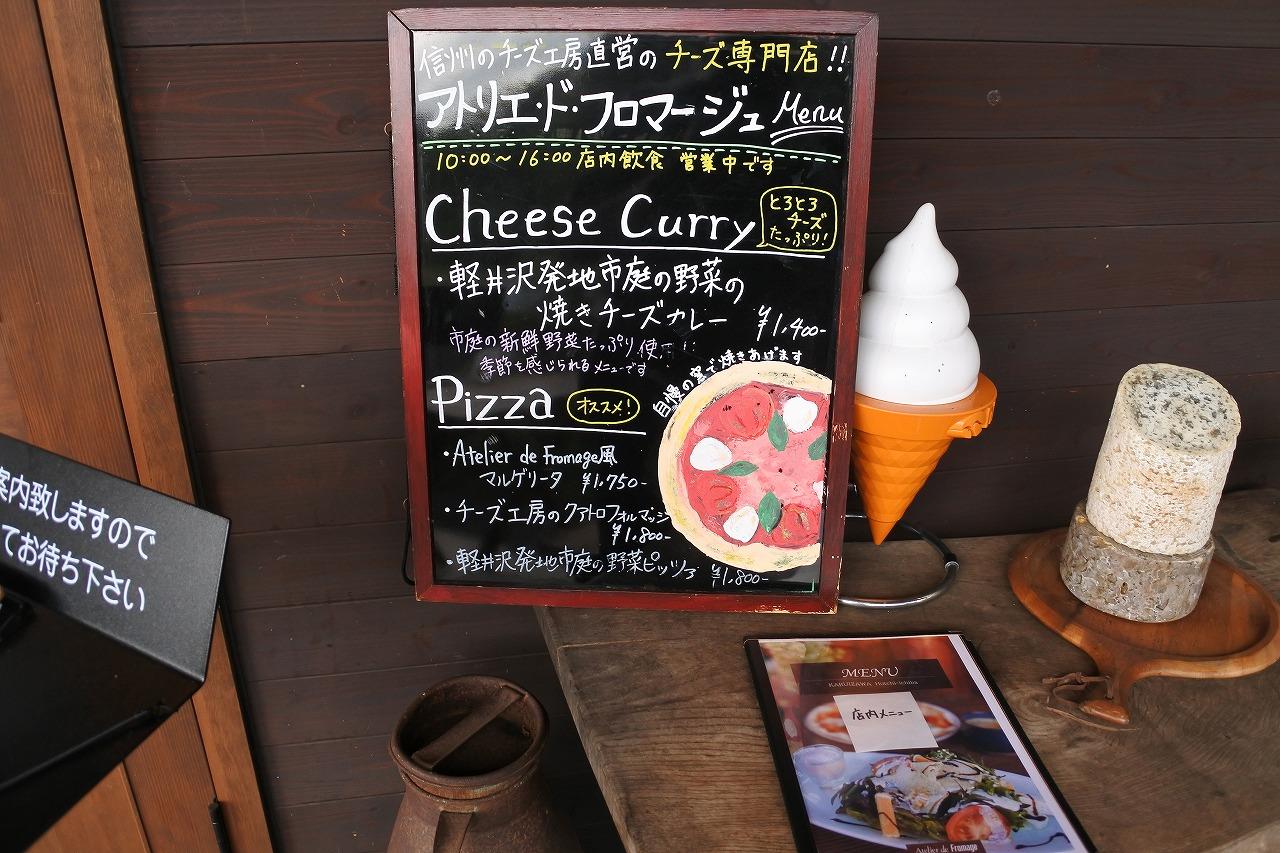 信州のチーズ工房直営の チーズ専門店!!
アトリエ・ド・フロマージュ Menu
10:00～16:00 店内飲食 営業中です
Cheese Curry
とろとろ
チーズ
たっぷり!
・軽井沢発地市庭の野菜の
焼きチーズカレー ¥1,400-
市庭の新鮮野菜たっぷり使用!!
季節を感じられるメニューです
Pizza オススメ!
自慢の窯で焼きあげます
・Atelier de Fromage風
マルゲリータ ¥1,750-
・チーズ工房のクアトロフォルマッジ
¥1,800-
・軽井沢発地市庭の野菜ピッツァ ¥1,800-
案内致しますので
てお待ち下さい
MENU
KARUIZAWA Hotchi-ichiba
店内メニュー
Atelier de Fromage